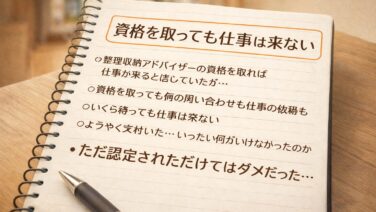 資格を取っても仕事は来ない
○整理収納アドバイザーの資格を取れば
仕事が来ると信していたが…
○資格を取っても の い合わせも仕事の依 も
○いくら待っても仕事は来ない
○ようやく支付いた…いったい何がいけなかったのか
•ただ認定されただけてはダメだった…